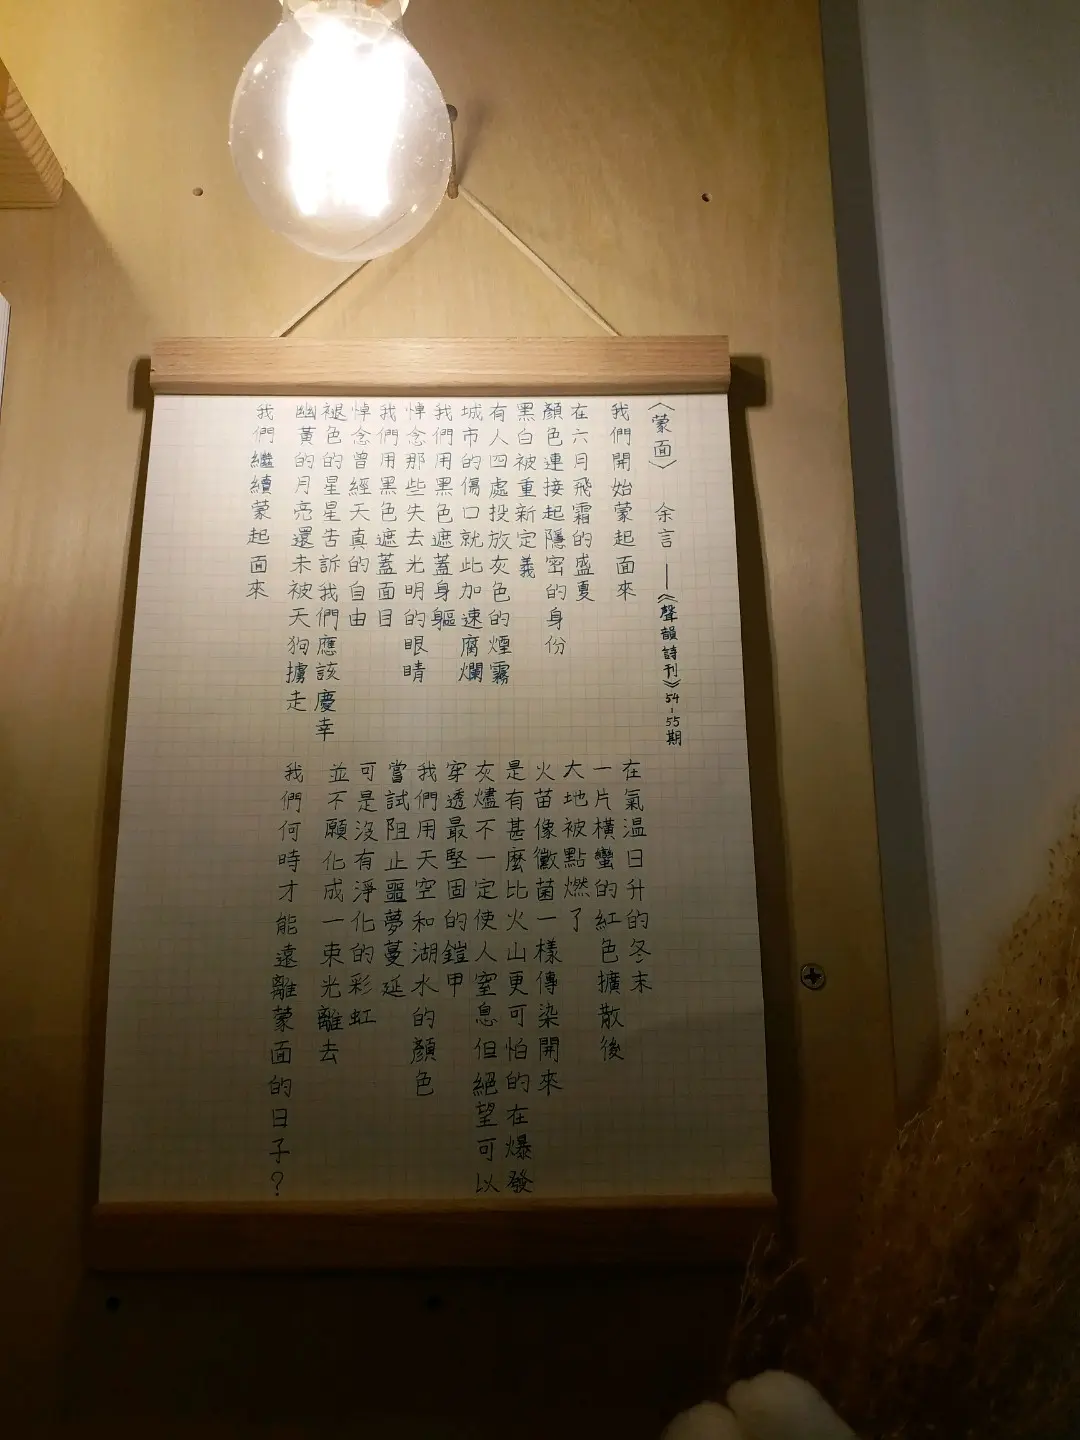 〈蒙面〉 余言 ——《聲韻詩刊》54-55期
我們開始蒙起面來
在六月飛霜的盛夏
顏色連接起隱密的身份
黑白被重新定義
有人四處投放灰色的煙霧
城市的傷口就此加速腐爛
我們用黑色遮蓋身軀
悼念那些失去光明的眼睛
我們用黑色遮蓋面目
悼念曾經天真的自由
褪色的星星告訴我們應該慶幸
幽黃的月亮還未被天狗擄走
我們繼續蒙起面來
在氣溫日升的冬末
一片橫蠻的紅色擴散後
大地被點燃了
火苗像黴菌一樣傳染開來
是有甚麼比火山更可怕的在爆發
灰燼不一定使人窒息但絕望可以
穿透最堅固的鎧甲
我們用天空和湖水的顏色
嘗試阻止噩夢蔓延
可是沒有淨化的彩虹
並不願化成一束光離去
我們何時才能遠離蒙面的日子？